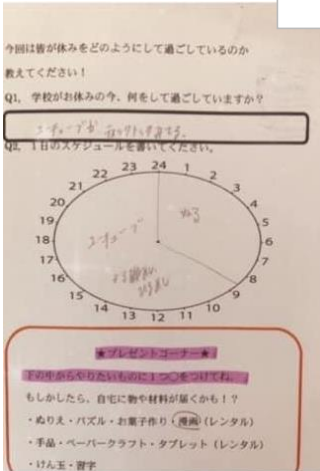 今回は皆が休みをどのようにして過ごしているのか
教えてください!
Q1, 学校がお休みの今、何をして過ごしていますか?
ユーチューブか
Q2, 1日のスケジュールを書いてください。
24
23 1
22 2
21 3
20 4
19 5
18 6
17 7
16 8
15 9
14 10
13 12 11
ねる
ユーチューブ
★プレゼントコーナー★
下の中からやりたいものに1つ○をつけてね。
もしかしたら、自宅に物や材料が届くかも!?
・ぬりえ・パズル・お菓子作り・漫画(レンタル)
・手品・ペーパークラフト・タブレット(レンタル)
・けん玉・習字